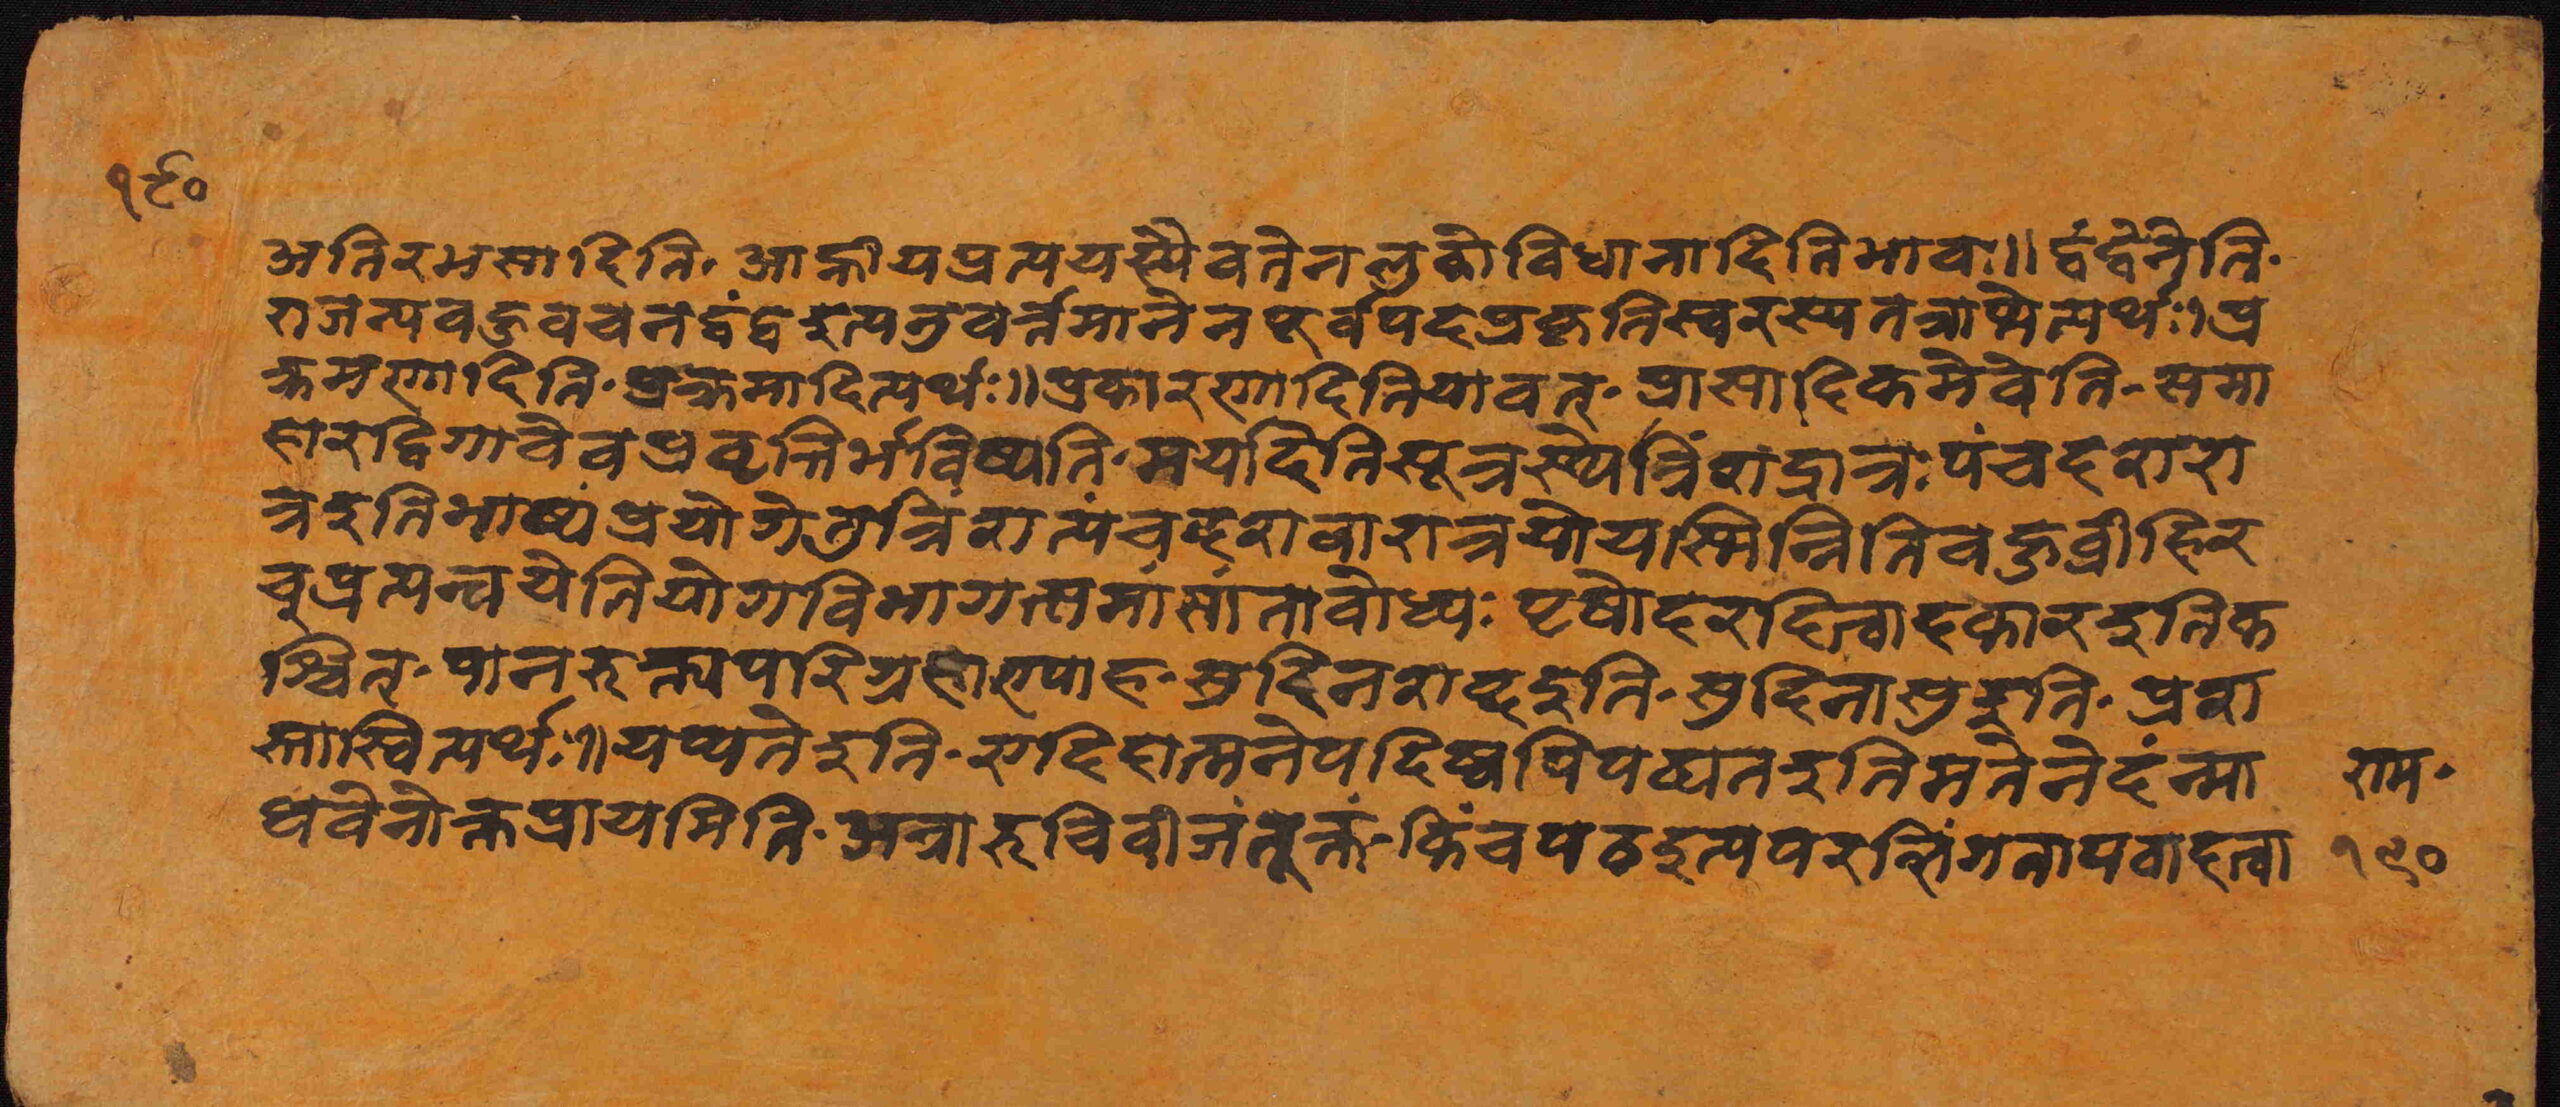 १९०
अतिरभसादिति. आर्हीयप्रत्ययस्यैवतेनलुकोविधानादितिभावः॥ द्वंद्वेनेति.
राजन्यवहुवचनद्वंद्वइत्यनुवर्त्तमानेनपूर्वपदप्रकृतिस्वरस्यतत्राप्नेत्यर्थः। प्र
क्रमरणादिति. प्रक्रमादित्यर्थः॥ प्रकारणादितियावत्. प्रासादिकमेवेति. समा
हारद्विगावेवप्रवृत्तिर्भविष्यति. मयदितिसूत्रस्येत्रिंशद्रात्रः पंचदशरा
त्रइतिभाष्यंप्रयोगेतुत्रिंशत्पंचदशवारात्रयोयस्मिन्नितिवहुव्रीहिर
च्प्रत्यन्वयेतियोगविभागत्समांसांतावोध्यः पृषोदरादित्वादकारइतिक
श्चित्. पानरुत्त्यपरिग्रहारुपाह. सुदिनशब्दइति. सुदिनासुइति. प्रशा
स्तास्वित्यर्थः॥ यप्यतेइति. रणदिहात्मनेपदिष्वपिपठ्यतइतिमतेनेदंन्मा
धवेनोक्तप्रायमिति. अत्रारुचिवीजंतूक्तं. किंचपठइत्यपरलिंगतापवादत्वा
राम.
१९०